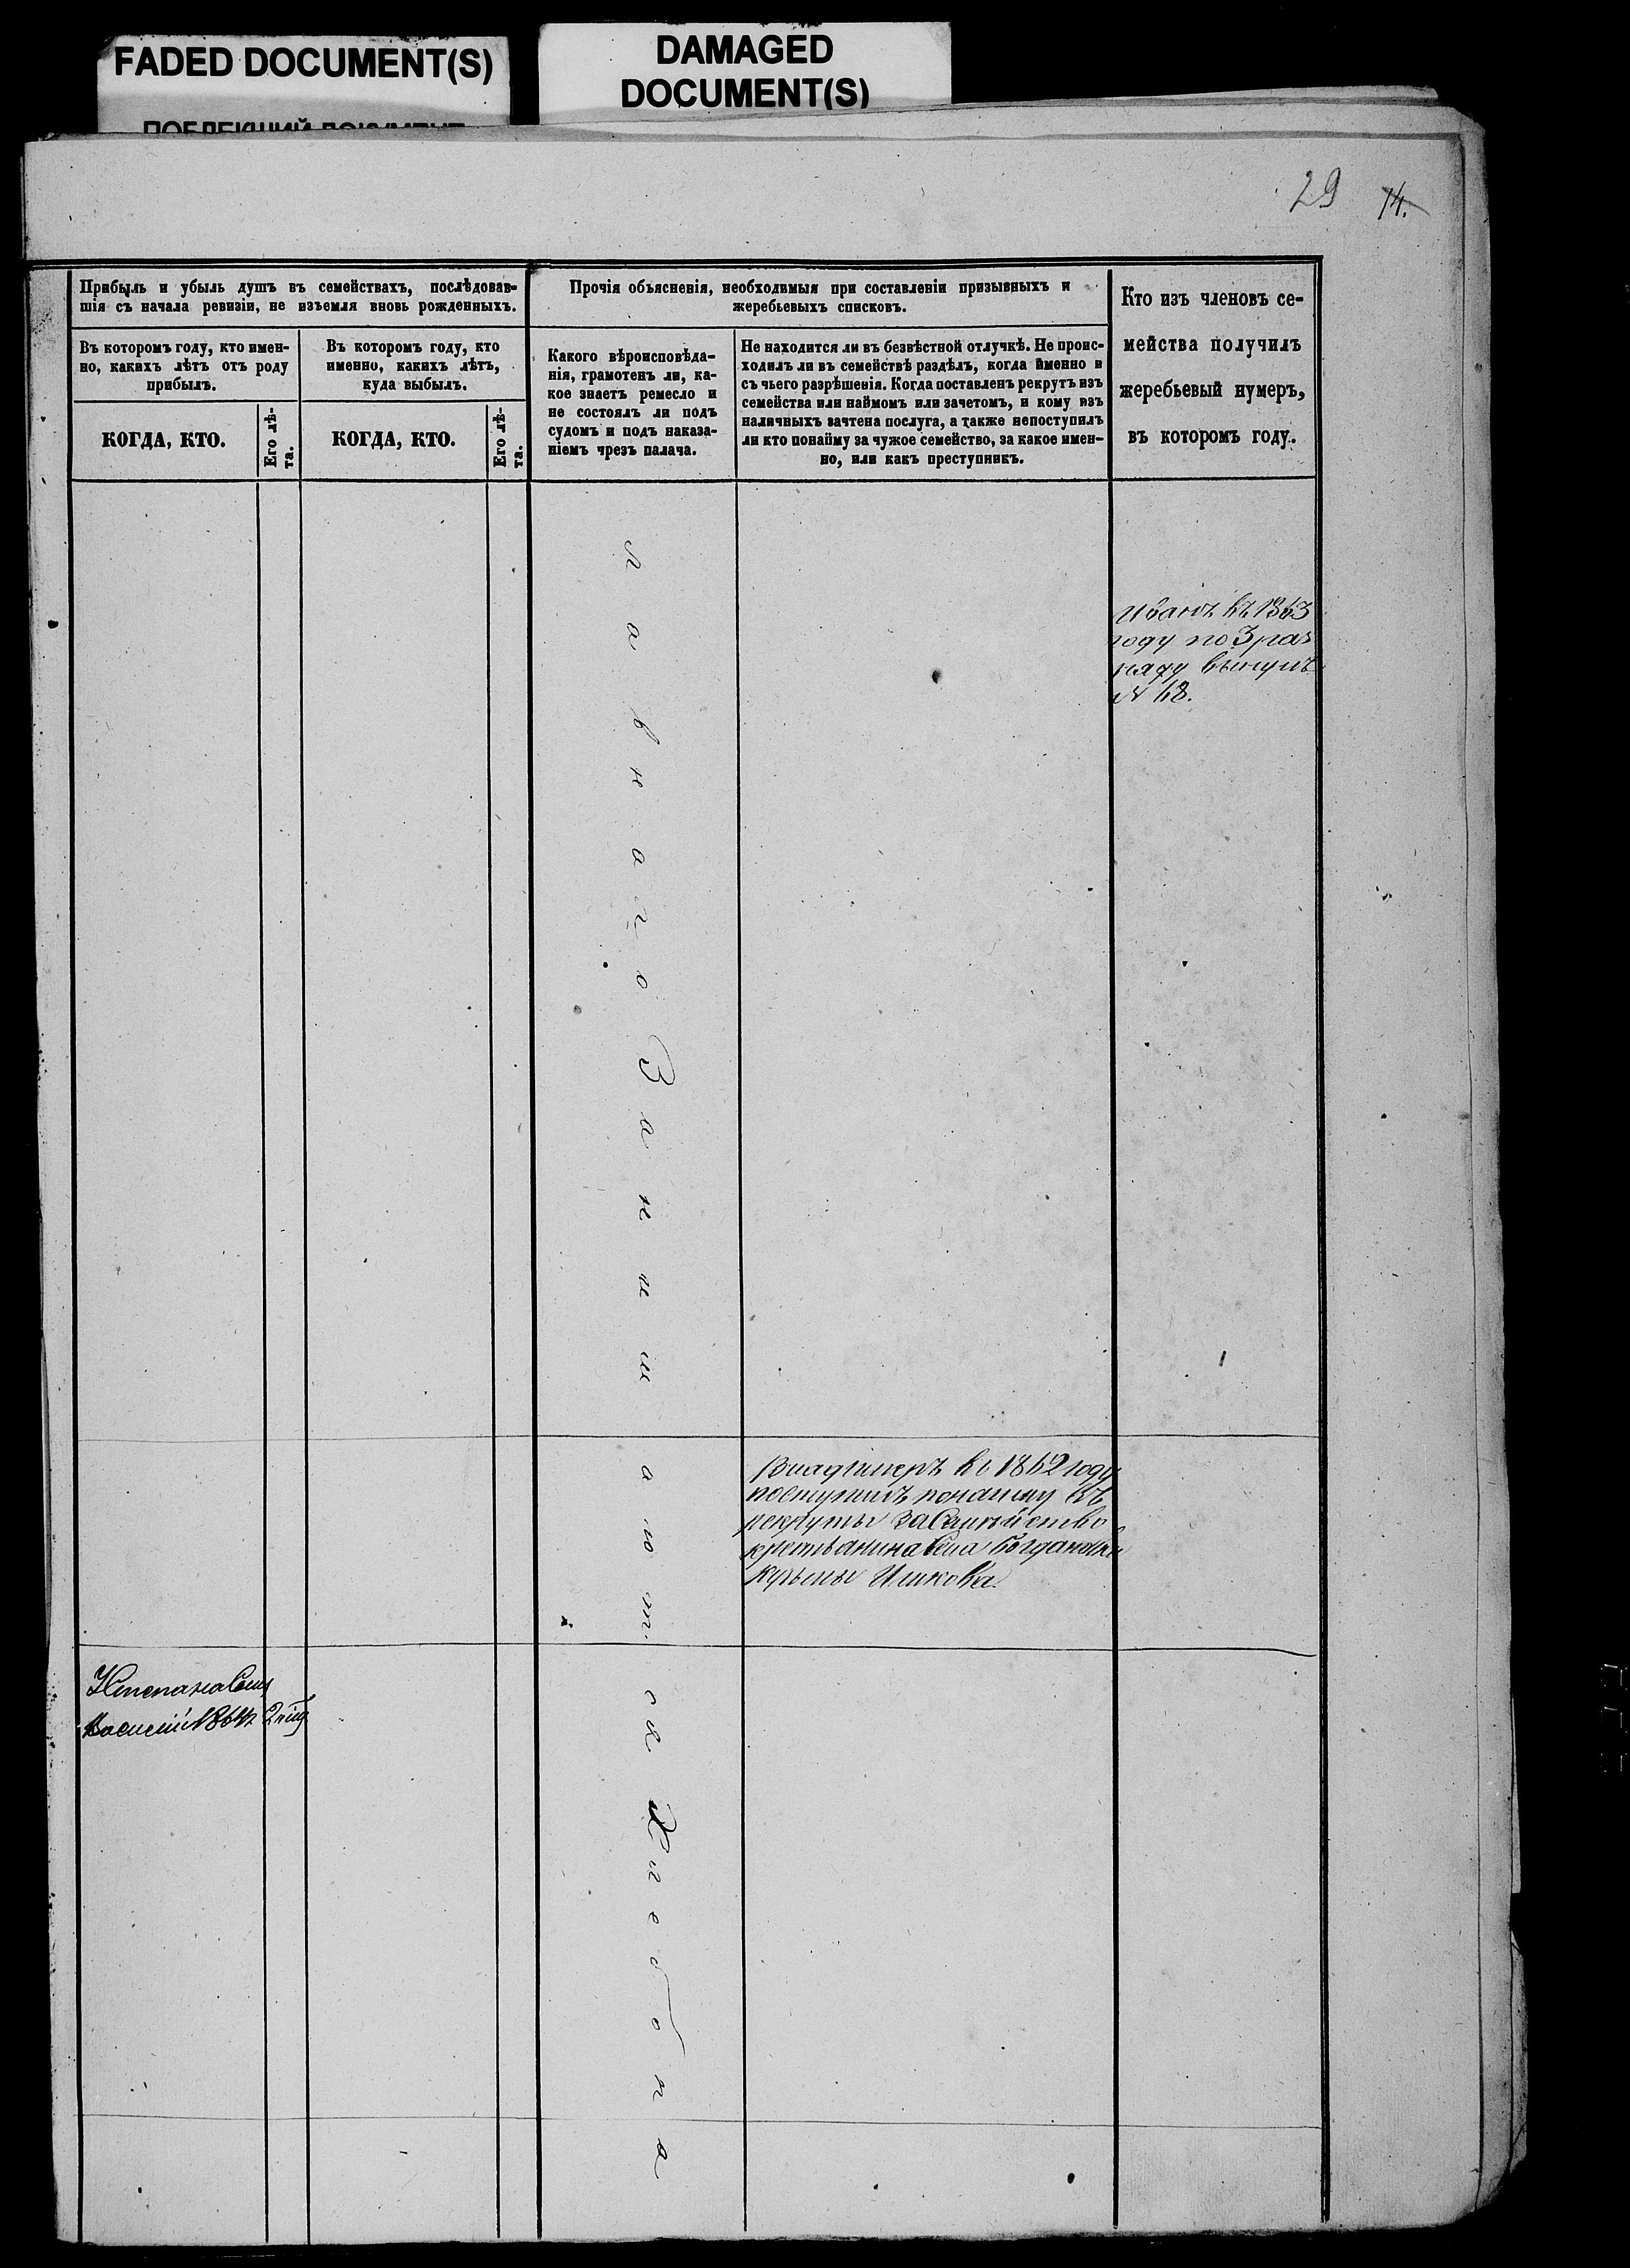 FADED DOCUMENT(S)
DAMAGED
DOCUMENT(S)
ПОБЛЕКШИЙ ДОКУМЕНТ
29 14.
Прибыль и убыль душъ въ семействахъ, послѣдовав-
шія съ начала ревизіи, не изъемля вновь рожденныхъ.
Въ которомъ году, кто имен-
но, какихъ лѣтъ отъ роду
прибылъ.
КОГДА, КТО.
Его лѣ-
та.
Въ которомъ году, кто
именно, какихъ лѣтъ,
куда выбылъ.
КОГДА, КТО.
Его лѣ-
та.
Прочія объясненія, необходимыя при составленіи призывныхъ и
жеребьевыхъ списковъ.
Какого вѣроисповѣда-
нія, грамотенъ ли, ка-
кое знаетъ ремесло и
не состоялъ ли подъ
судомъ и подъ наказа-
ніемъ чрезъ палача.
Не находится ли въ безвѣстной отлучкѣ. Не проис-
ходилъ ли въ семействѣ раздѣлъ, когда именно и
съ чьего разрѣшенія. Когда поставленъ рекрутъ изъ
семейства или наймомъ или зачетомъ, и кому изъ
наличныхъ зачтена послуга, а также непоступилъ
ли кто понайму за чужое семейство, за какое имен-
но, или какъ преступникъ.
Кто изъ членовъ се-
мейства получилъ
жеребьевый нумеръ,
въ которомъ году.
Иванъ въ 1863
году по 3 раз
ряду вынулъ
N 68.
л а в н а г о З а н и м а ю т. с я Х л е б о п а
Владимеръ въ 1862 году
поступилъ понайму въ
рекруты за Семѣйство
крестьянина Села
Кузьмы
У Степана Сынъ
Василій 1864 г.